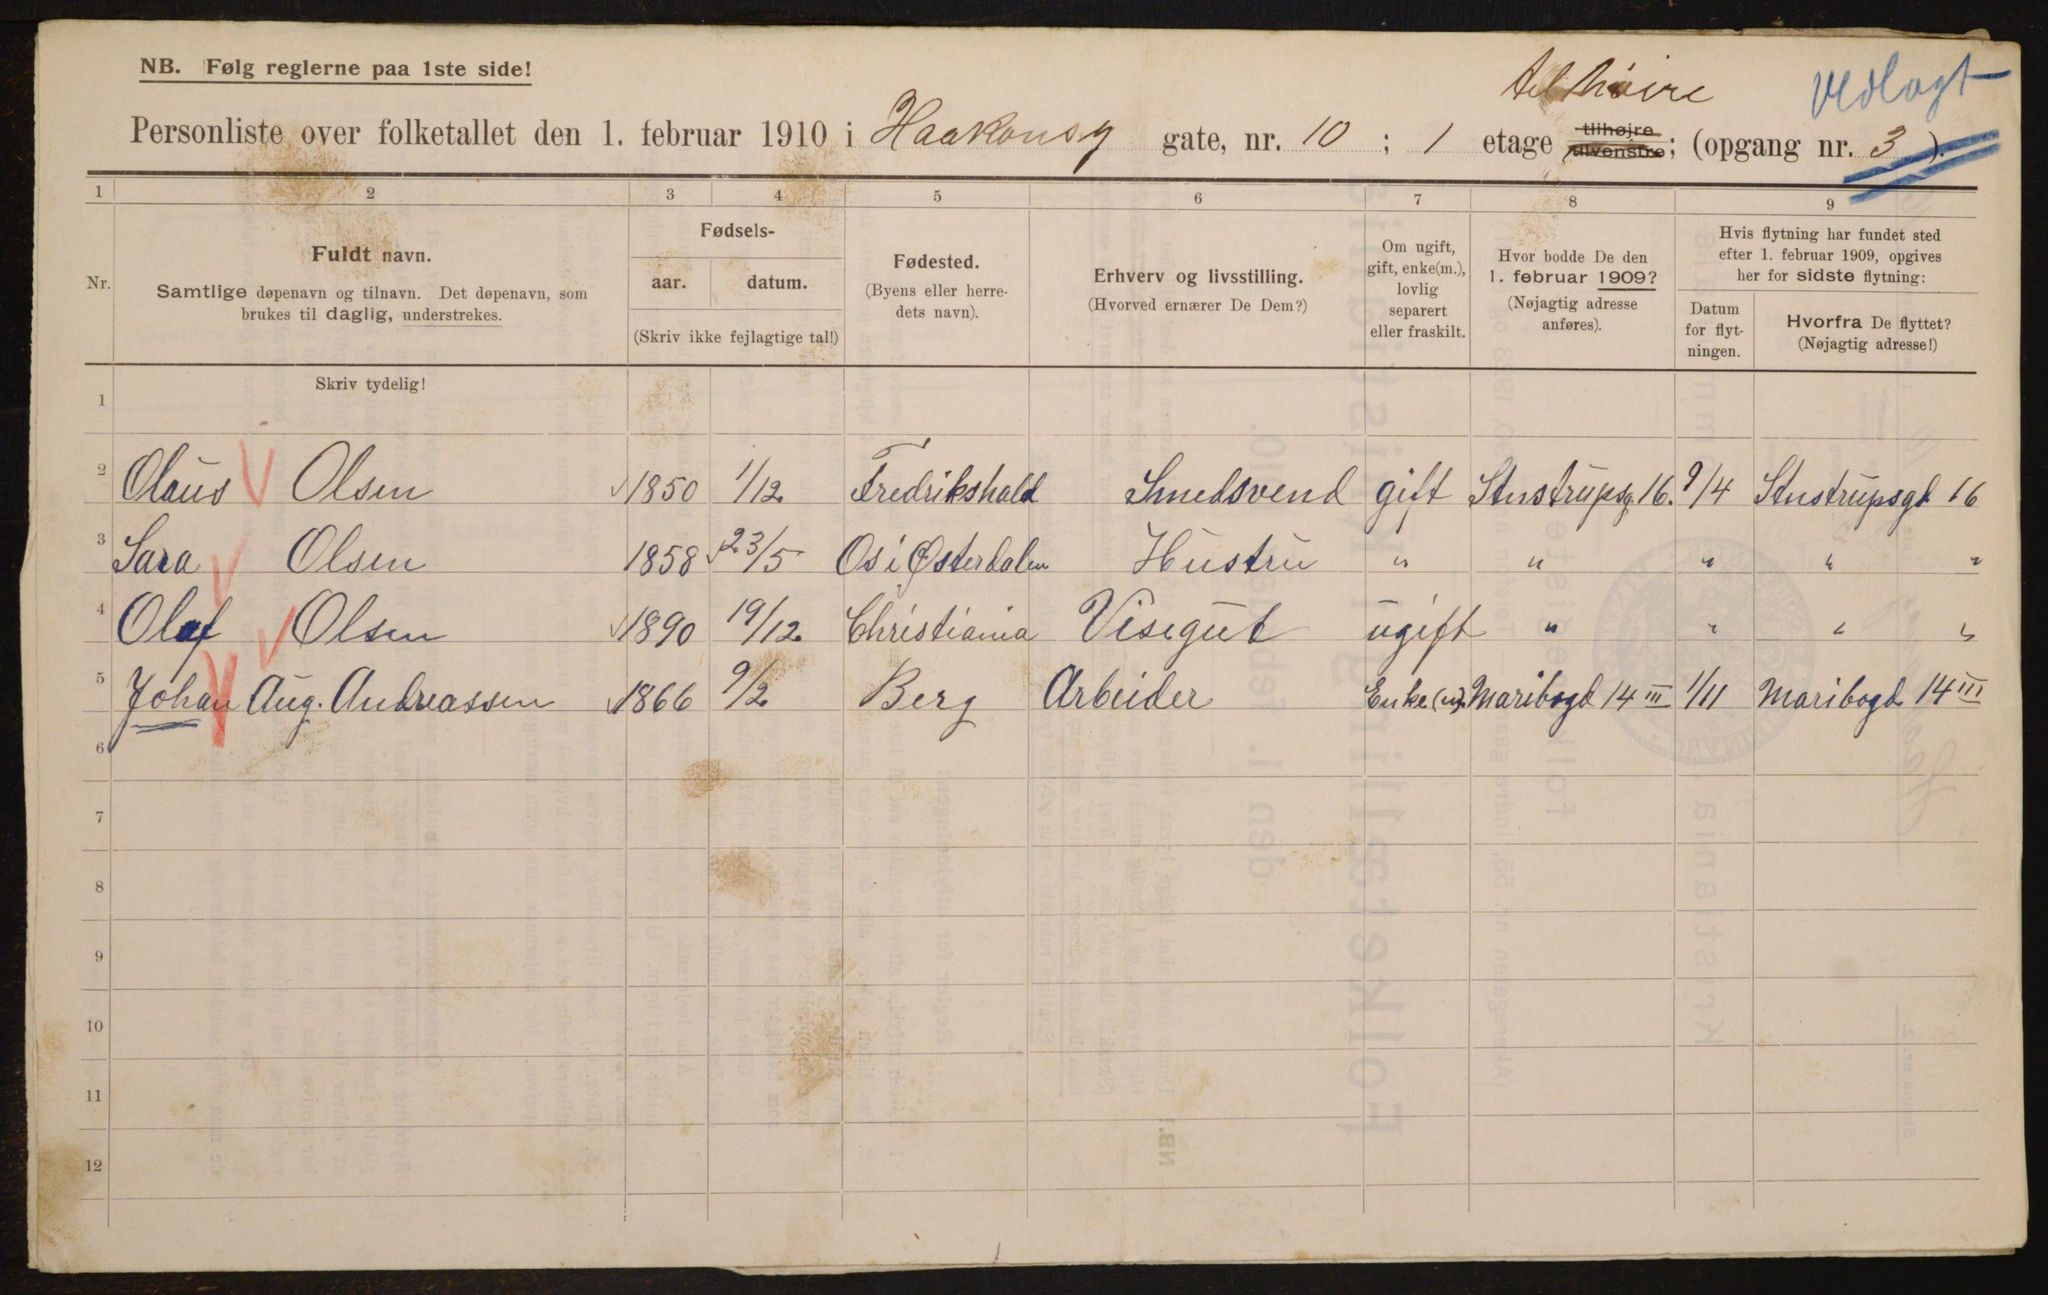 NB. Følg reglerne paa 1ste side!
til høire
Vedlagt
Personliste over folketallet den 1. februar 1910 i Haakonsg gate, nr. 10 ; 1 etage tilhøjre tilvenstre; (opgang nr. 3 ).
1 2 3 4 5 6 7 8 9
Nr.
Fuldt navn.
Samtlige døpenavn og tilnavn. Det døpenavn, som
brukes til daglig, understrekes.
Fødsels-
aar. datum.
(Skriv ikke fejlagtige tal!)
Fødested.
(Byens eller herre-
dets navn).
Erhverv og livsstilling.
(Hvorved ernærer De Dem?)
Om ugift,
gift, enke(m.),
lovlig
separert
eller fraskilt.
Hvor bodde De den
1. februar 1909?
(Nøjagtig adresse
anføres).
Hvis flytning har fundet sted
efter 1. februar 1909, opgives
her for sidste flytning:
Datum
for flyt-
ningen.
Hvorfra De flyttet?
(Nøjagtig adresse!)
Skriv tydelig!
1
2 Olaus Olsen 1850 1/12 Fredrikshald Smedsvend gift Stustrupsg. 16. 9/4 Stustrupsgt 16
3 Sara Olsen 1858 23/5 Os i Østerdalen Hustru " " " " "
4 Olaf Olsen 1890 19/12 Christiania Visegut ugift " " " "
5 Johan Aug. Andreassen 1866 9/2 Berg Arbeider Enke(m). Maribogd 14 III 1/11 Maribogd 14 III
6
7
8
9
10
11
12